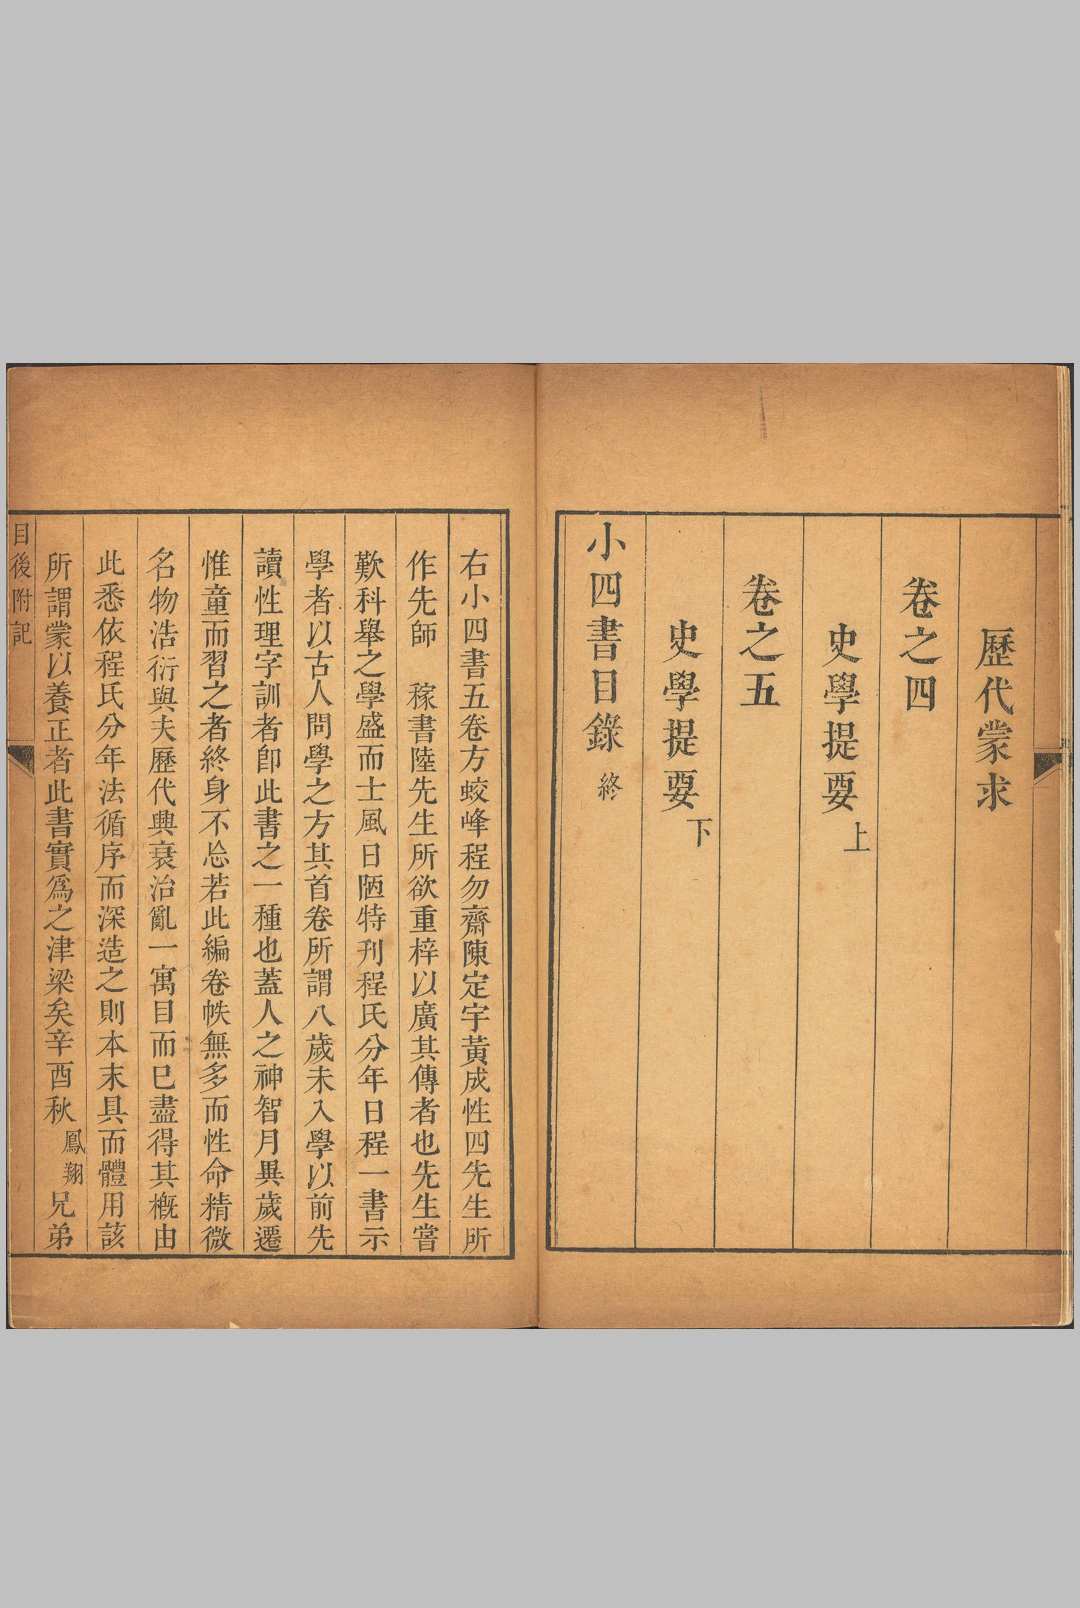 歷代蒙求
卷之四
史學提要上
卷之五
史學提要下
小四書目錄終
右小四書五卷方蛟峰程勿齋陳定宇黃成性四先生所
作先師　稼書陸先生所欲重梓以廣其傳者也先生嘗
歎科舉之學盛而士風日陋特刊程氏分年日程一書示
學者以古人問學之方其首卷所謂八歲未入學以前先
讀性理字訓者卽此書之一種也蓋人之神智月異歲遷
惟童而習之者終身不忘若此編卷帙無多而性命精微
名物浩衍與夫歷代興衰治亂一寓目而已盡得其概由
此悉依程氏分年法循序而深造之則本末具而體用該
所謂蒙以養正者此書實爲之津梁矣辛酉秋鳳翔兄弟
目後附記